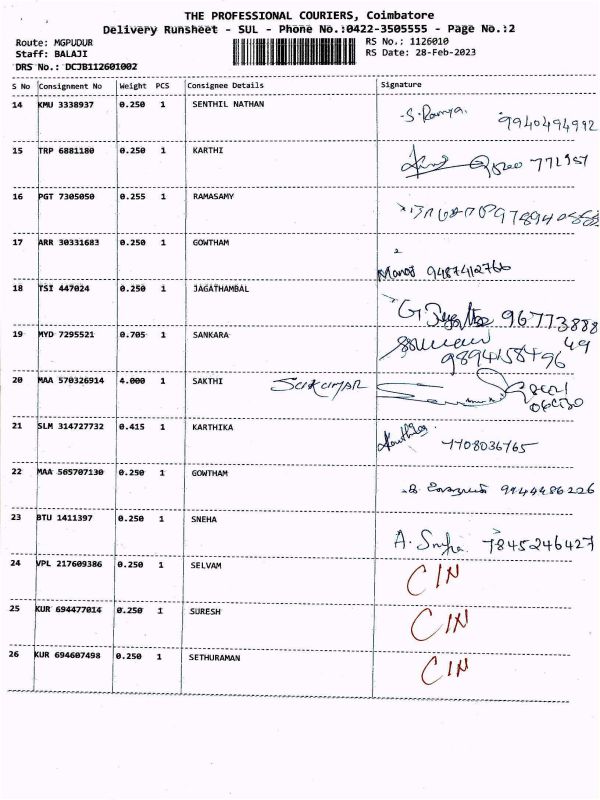 THE PROFESSIONAL COURIERS, Coimbatore
Delivery Runsheet - SUL - Phone No.:0422-3505555 - Page No.:2
Route: MGPUDUR RS No.: 1126010
Staff: BALAJI RS Date: 28-Feb-2023
DRS No.: DCJB112601002
S No Consignment No Weight PCS Consignee Details Signature
14 KMU 3338937 0.250 1 SENTHIL NATHAN S. Ramya. 9940494992
15 TRP 6881180 0.250 1 KARTHI
16 PGT 7305050 0.255 1 RAMASAMY
17 ARR 30331683 0.250 1 GOWTHAM Manoj 9487412766
18 TSI 447024 0.250 1 JAGATHAMBAL G 96773888
49
19 MYD 7295521 0.705 1 SANKARA 9894158496
20 MAA 570326914 4.000 1 SAKTHI SUKUMAR
21 SLM 314727732 0.415 1 KARTHIKA 7708036765
22 MAA 565707130 0.250 1 GOWTHAM 9944486226
23 BTU 1411397 0.250 1 SNEHA A. Sneha. 7845246427
24 VPL 217609386 0.250 1 SELVAM C/N
25 KUR 694477014 0.250 1 SURESH C/N
26 KUR 694607498 0.250 1 SETHURAMAN C/N